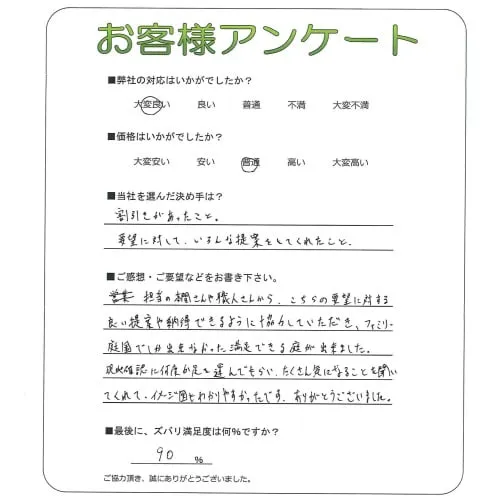 お客様アンケート
■弊社の対応はいかがでしたか？
大変良い 良い 普通 不満 大変不満
■価格はいかがでしたか？
大変安い 安い 普通 高い 大変高い
■当社を選んだ決め手は？
割引きがあったこと。
要望に対して、いろんな提案をしてくれたこと。
■ご感想・ご要望などをお書き下さい。
営業 担当の棚さんや職人さんから、こちらの要望に対する
良い提案や納得できるように協力していただき、ファミリー
庭園でしか出来なかった満足できる庭が出来ました。
現地確認に何度か足を運んでもらい、たくさん気になることを聞い
てくれて、イメージ図もわかりやすかったです。ありがとうございました。
■最後に、ズバリ満足度は何%ですか？
90 %
ご協力頂き、誠にありがとうございました。